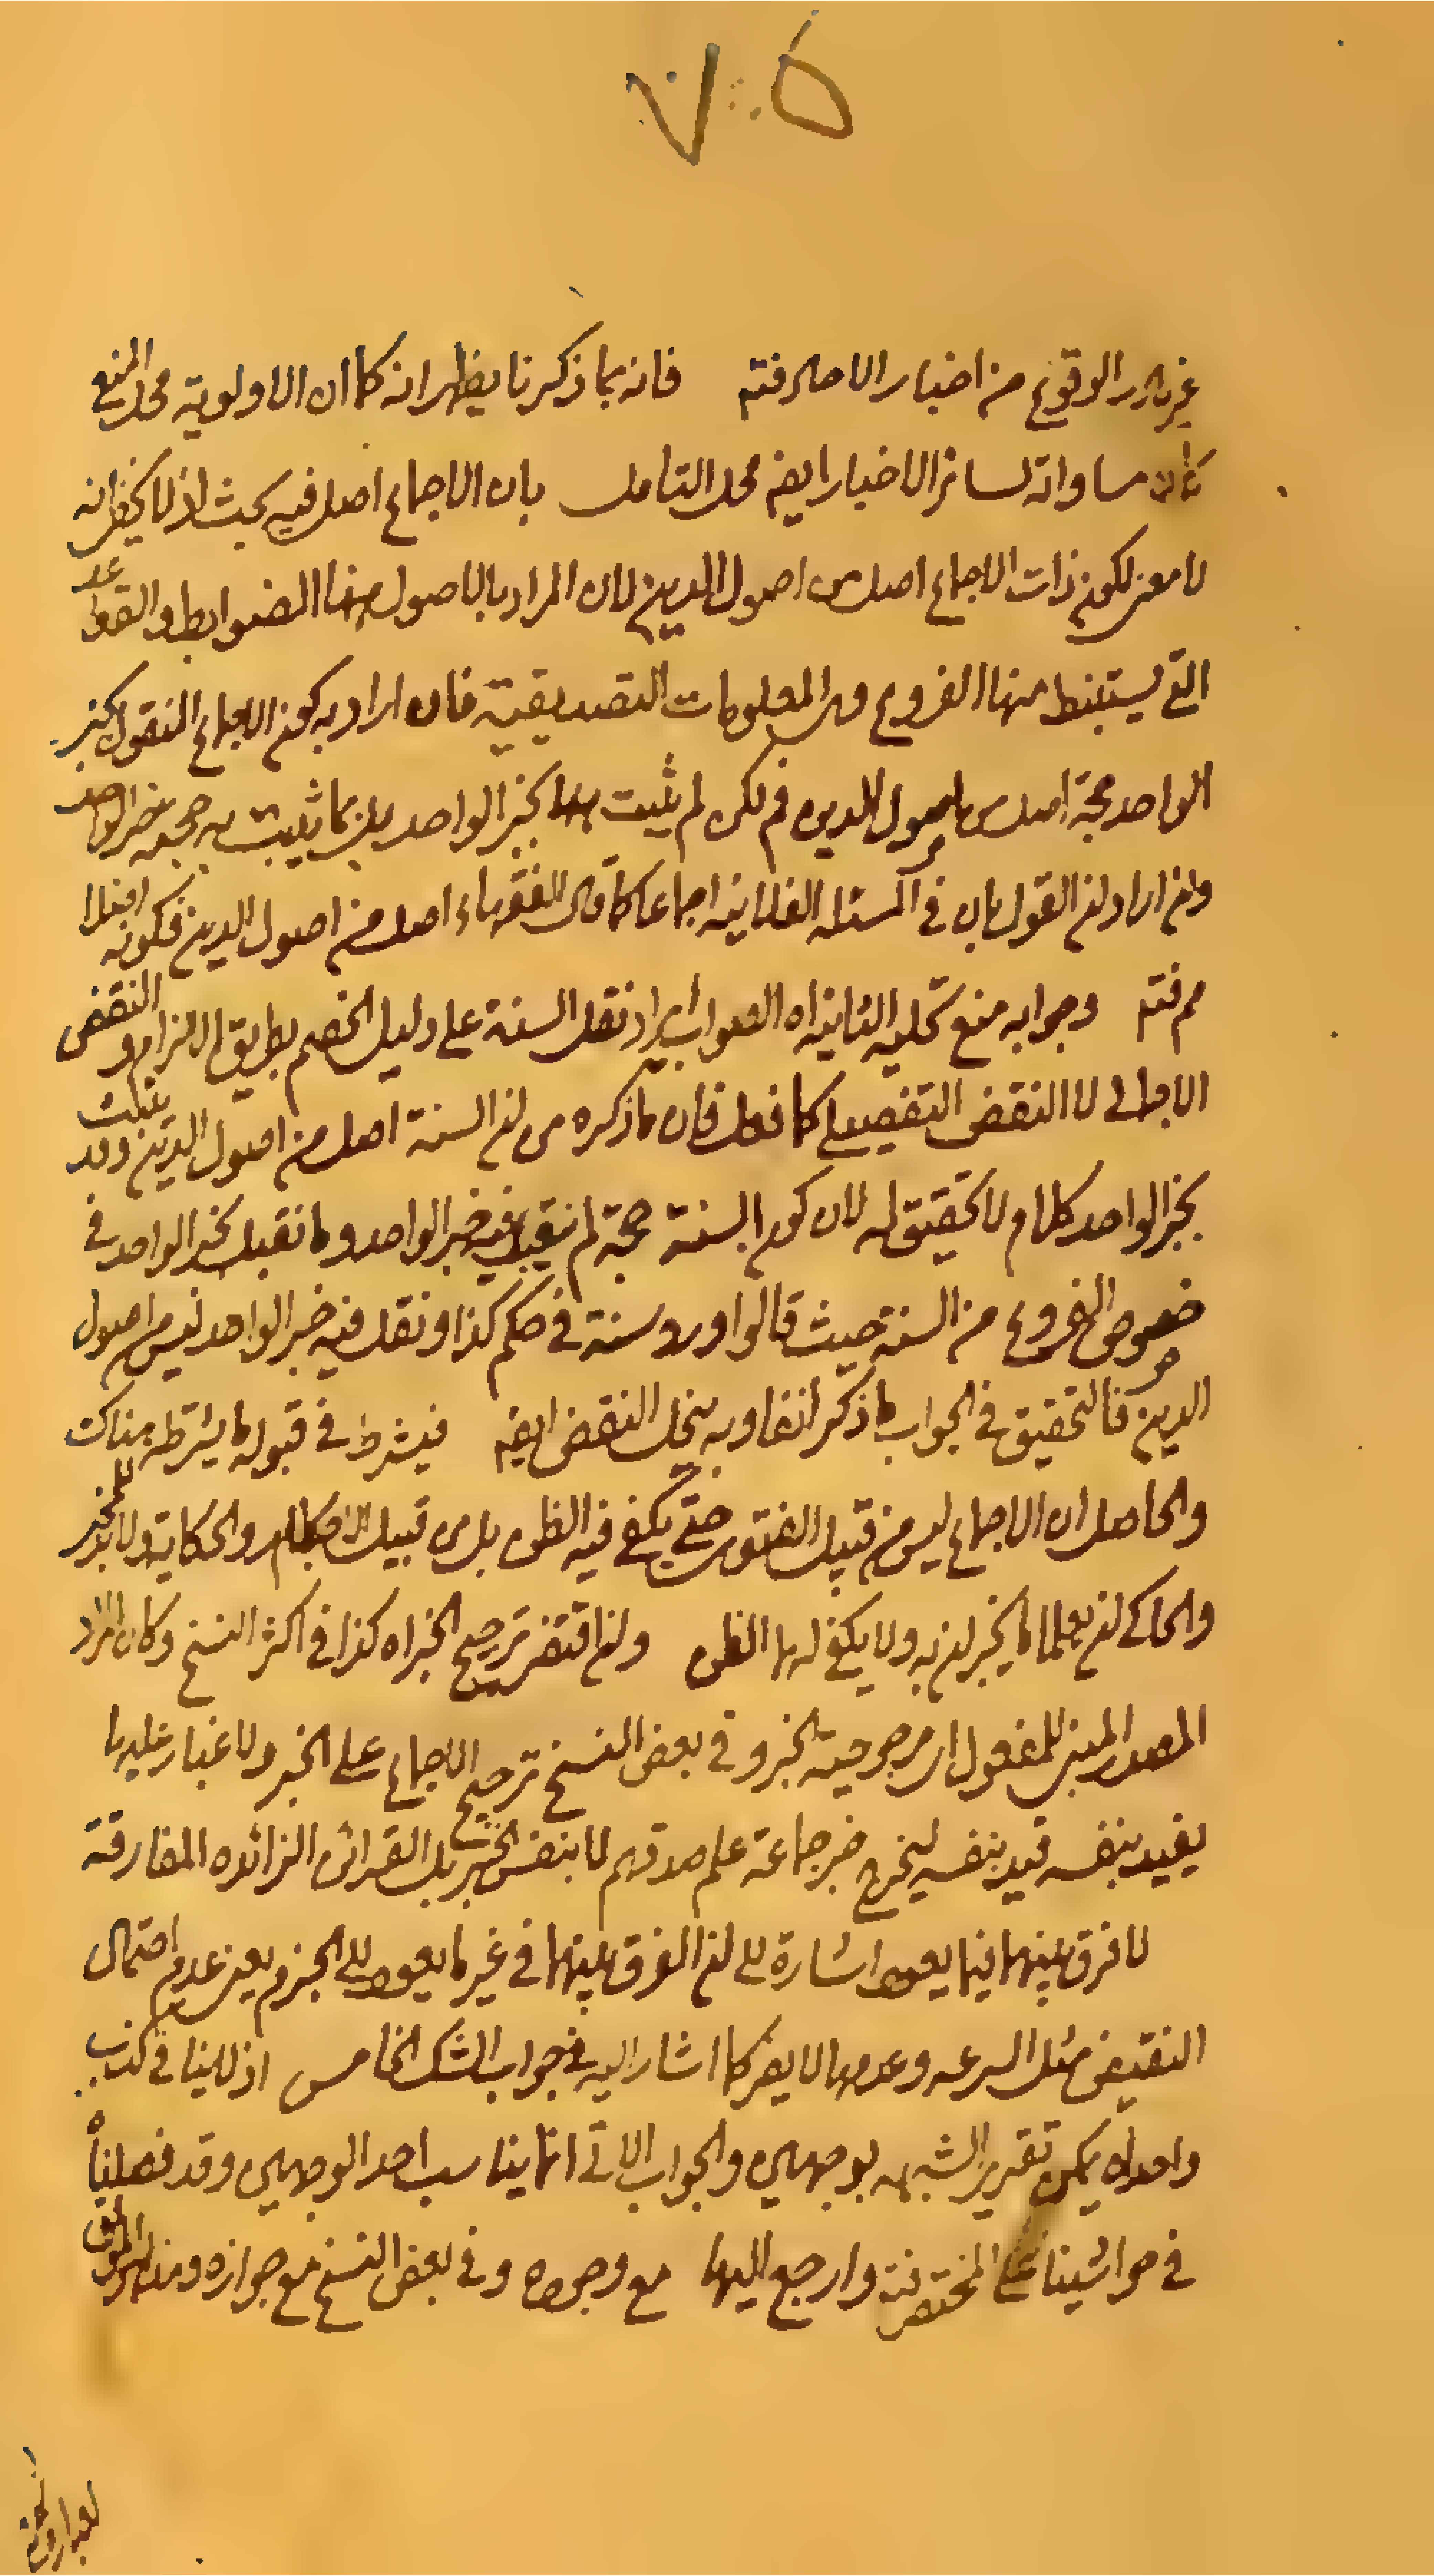 ٧٥
غير نادر الوقوع من اخبار الاحاد فتم فانه بما ذكرنا يظهر انه كما ان الاولوية محل المنع
كان مساواته لسائر الاخبار ايضا محل التامل بان الاجماع اصل فيه بحث اذ لا يخفى انه
لا معنى لكون ذات الاجماع اصل من اصول الدين لان المراد بالاصول هنا الضوابط والقواعد
التى يستنبط منها الفروع وهى المعلومات التصديقية فان اراد به كون الاجماع المنقول بخبر
الواحد حجة اصل من اصول الدين فم لكن لم يثبت بخبر الواحد بل بما يثبت به حجية خبر الواحد
وان اراد ان القول بان فى المسئلة الفلانية اجماعا كما قال الفقهاء اصل من اصول الدين فكونه اصلا
مم فتم وجوابه منع كلية الثانية اه الصواب ايراد نقل السنة على دليل الخصم بطريق الالزام والنقض
الاجمالى لا النقض التفصيلى كما فعل فان ما ذكره من ان السنة اصل من اصول الدين وقد يثبت
بخبر الواحد كلام لا تحقيق له لان كون السنة حجة لم نقبل فيه خبر الواحد وما نقبل بخبر الواحد فى
خصوص الفروع من السنة حيث قالوا ورد سنة فى حكم كذا ونقل فيه خبر الواحد ليس من اصول
الدين فالتحقيق فى الجواب ما ذكر انفا وبه ينحل النقض ايضا فيشرط فى قبوله ما يشترط هناك
والحاصل ان الاجماع ليس من قبيل الفتوى حتى يكفى فيه الظن بل من قبيل والحكاية ولا بد للمخبر
والحاكى ان يعلما ما يخبران به ولا يكفى لهما الظن وان اقتضى ترجيح الخبر اه كذا فى اكثر النسخ وكان المراد
المصدر المبنى للمفعول اى مرجوحية الخبر وفى بعض النسخ ترجيح الاجماع على الخبر ولا غبار عليها
يفيد بنفسه قيد بنفسه ليخرج خبر جماعة علم صدقهم لا بنفس الخبر بل القرائن الزائدة المفارقة
لا فرق بينهما فيما يعود اشارة الى ان الفرق بينهما فى غير ما يعود الى الجزم يعنى عدم احتمال
النقيض مثل السرعة وعدمها لا يضر كما اشار اليه فى جواب الشك الخامس اذ لا ينافى كذب
واحد اه يمكن تقرير الشبهة بوجهين والجواب الاتى انما يناسب احد الوجهين وقد فصلناه
فى حواشينا على المختصر فتم وارجع اليها مع وجوده وفى بعض النسخ مع جوازه